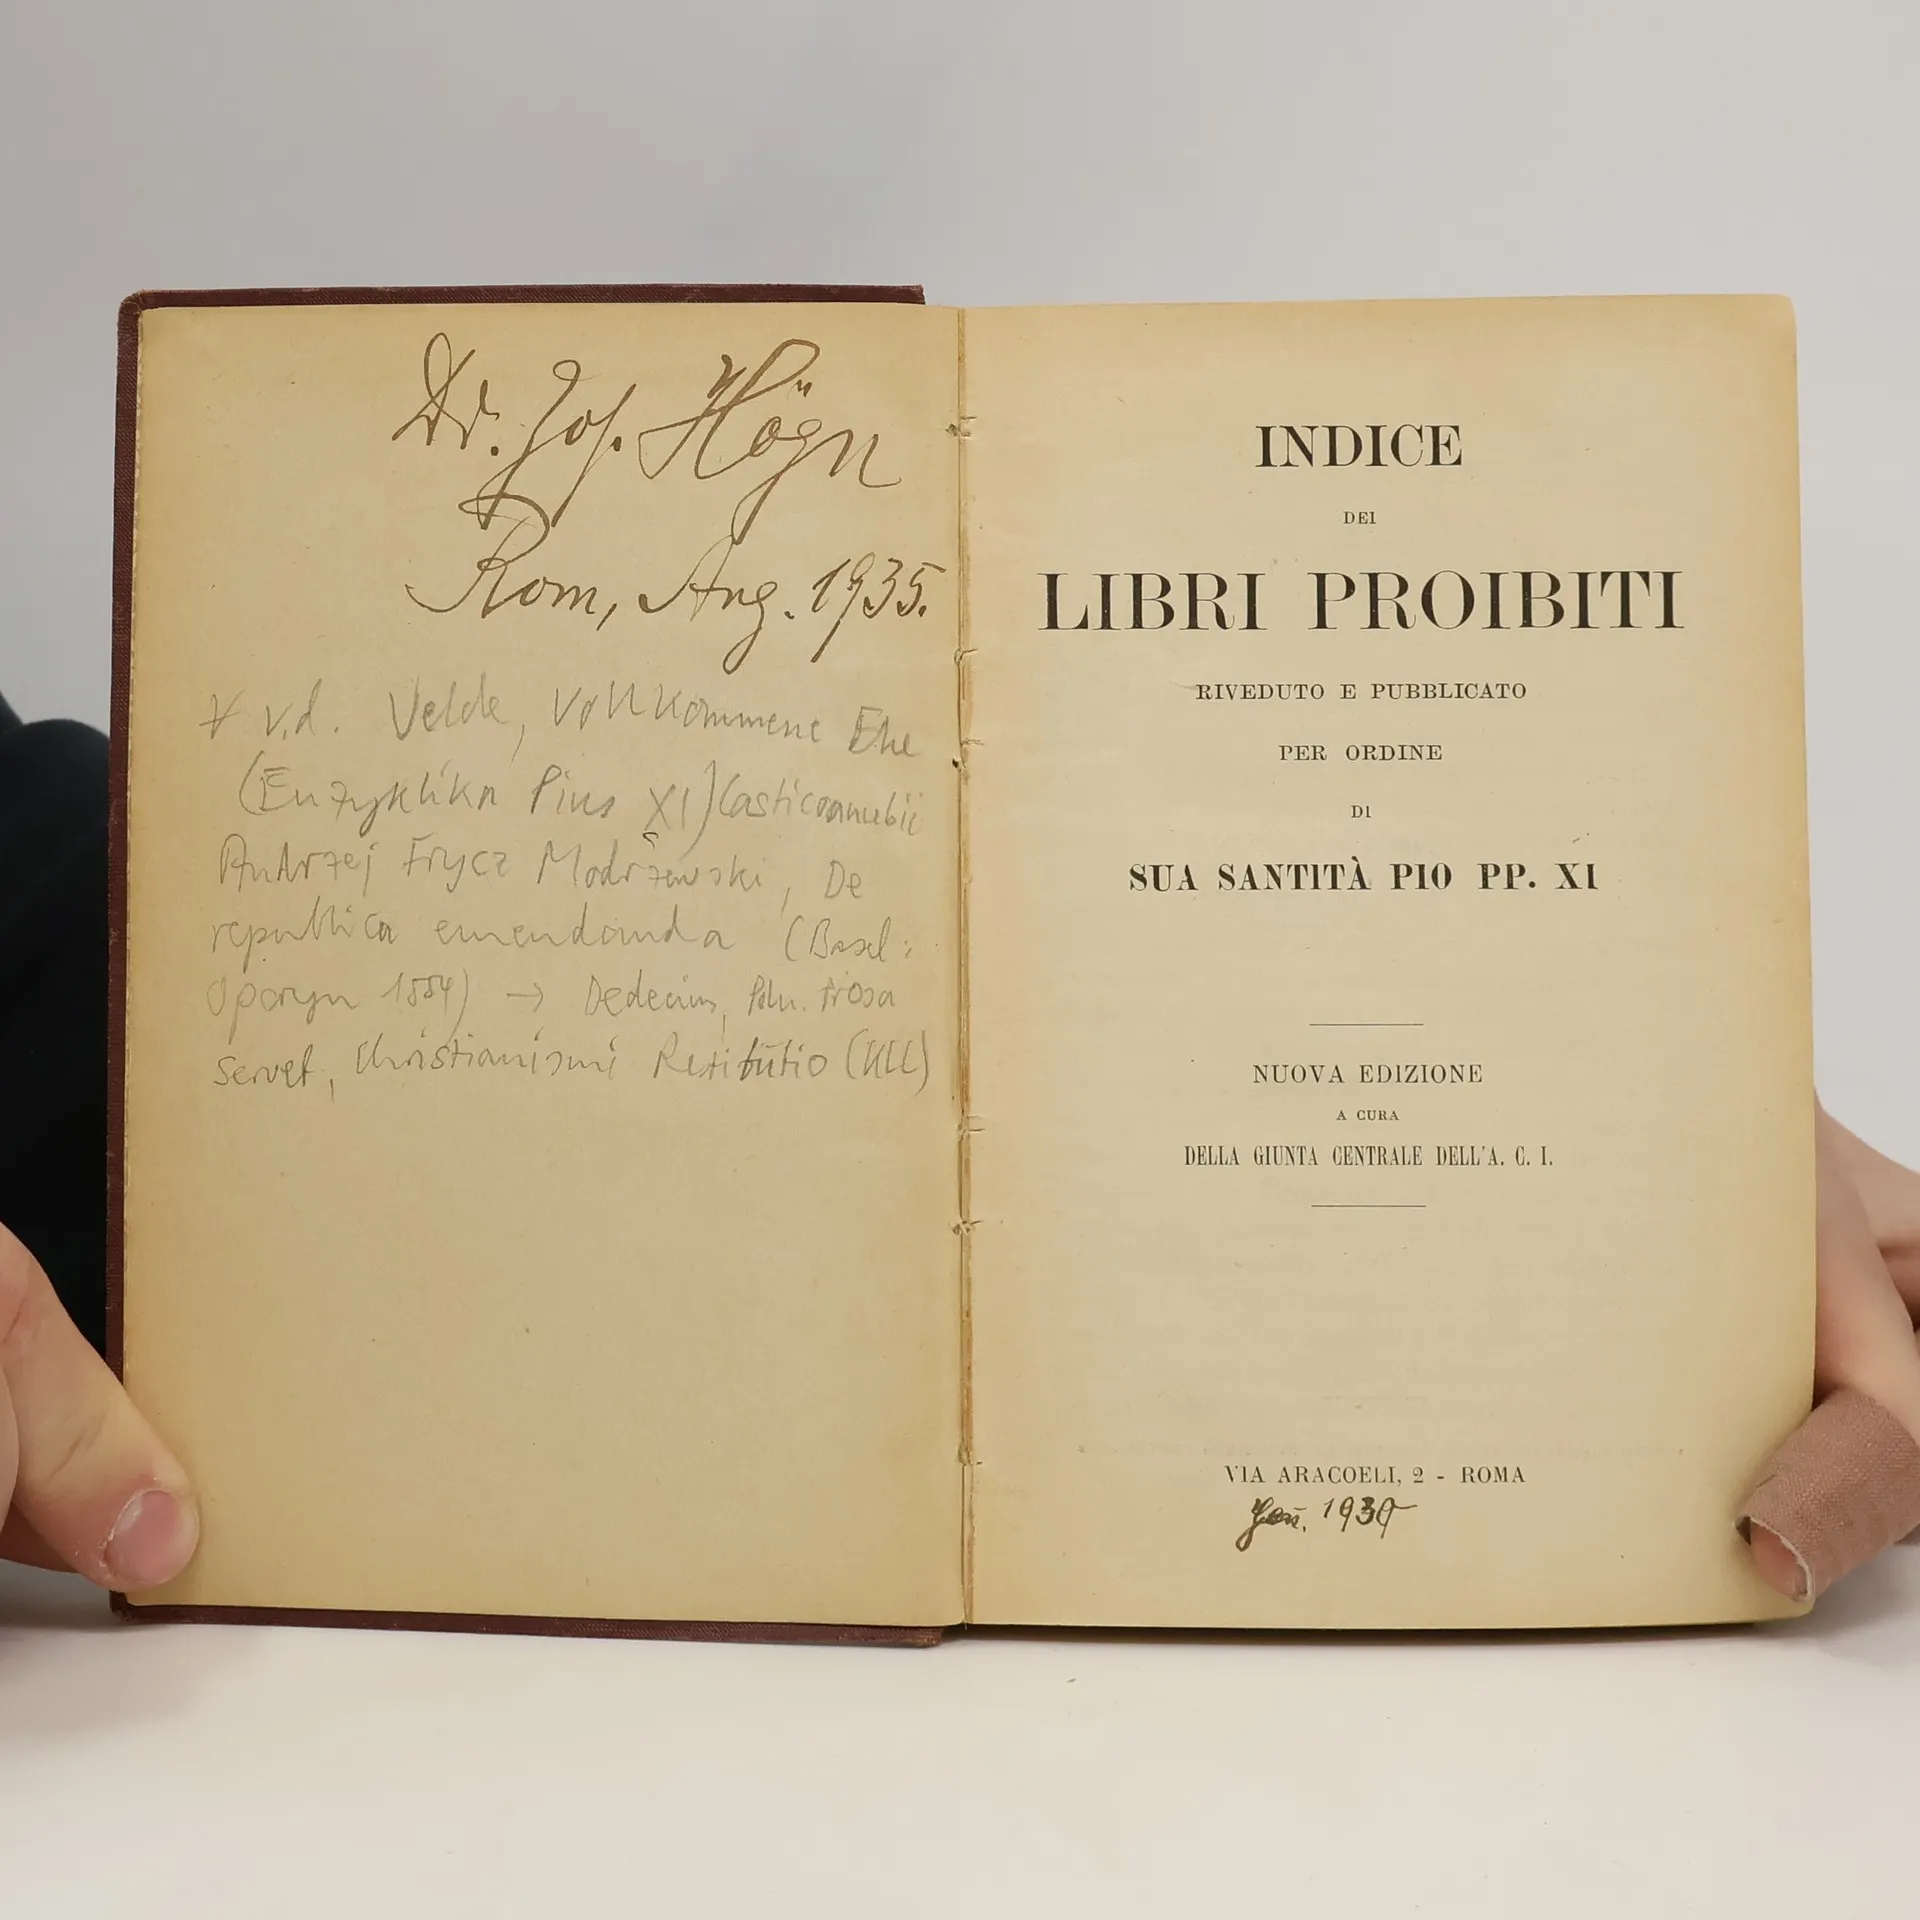 Dr. Jos. Högn
Rom, Aug. 1935.
v.d. Velde, Vollkommene Ehe
(Enzyklika Pius XI) Casti connubii
Andrzej Frycz Modrzewski, De
republica emendanda (Basel:
Oporyn 1554) → Dedecius, Poln. Prosa
Servet, Christianismi Restitutio
INDICE
DEI
LIBRI PROIBITI
RIVEDUTO E PUBBLICATO
PER ORDINE
DI
SUA SANTITÀ PIO PP. XI
NUOVA EDIZIONE
A CURA
DELLA GIUNTA CENTRALE DELL'A. C. I.
VIA ARACOELI, 2 - ROMA